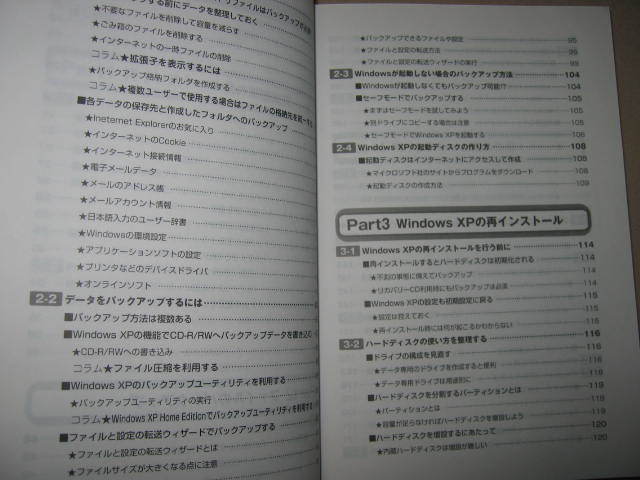 する前にデータを整理しておく
★不要なファイルを削除して容量を減らす
★ごみ箱のファイルを削除する
★インターネットの一時ファイルの削除
コラム★拡張子を表示するには
★バックアップ格納フォルダを作成する
コラム★複数ユーザーで使用する場合はファイルの格納先を統一する
■各データの保存先と作成したフォルダへのバックアップ
★Ineternet Explorerのお気に入り
★インターネットのCookie
★インターネット接続情報
★電子メールデータ
★メールのアドレス帳
★メールアカウント情報
★日本語入力のユーザー辞書
★Windowsの環境設定
★アプリケーションソフトの設定
★プリンタなどのデバイスドライバ
★オンラインソフト
2-2 データをバックアップするには
■バックアップ方法は複数ある
■Windows XPの機能でCD-R/RWへバックアップデータを書き込む
★CD-R/RWへの書き込み
コラム★ファイル圧縮を利用する
■Windows XPのバックアップユーティリティを利用する
★バックアップユーティリティの実行
コラム★Windows XP Home Editionでバックアップユーティリティを利用する
■ファイルと設定の転送ウィザードでバックアップする
★ファイルと設定の転送ウィザードとは
★ファイルサイズが大きくなる点に注意
★バックアップできるファイルや設定 95
★ファイルと設定の転送方法
★ファイルと設定の転送ウィザードの実行
2-3 Windowsが起動しない場合のバックアップ方法 104
■Windowsが起動しなくてもバックアップ可能!? 104
■セーフモードでバックアップする 105
★まずはセーフモードを試してみよう 105
★別ドライブにコピーする場合は注意 105
★セーフモードでWindows XPを起動する 106
2-4 Windows XPの起動ディスクの作り方 108
■起動ディスクはインターネットにアクセスして作成 108
★マイクロソフト社のサイトからプログラムをダウンロード 108
★起動ディスクの作成方法 109
Part3 Windows XPの再インストール
3-1 Windows XPの再インストールを行う前に 114
■再インストールするとハードディスクは初期化される 114
★不測の事態に備えてバックアップ 114
★リカバリーCD利用時にもバックアップは必須 114
■Windows XPの設定も初期設定に戻る 115
★設定は控えておく 115
★再インストール時には何が起こるかわからない 115
3-2 ハードディスクの使い方を整理する 116
■ドライブの構成を見直す 116
★データ専用のドライブを作成すると便利 116
★データ専用ドライブは用途別に 118
■ハードディスクを分割するパーティションとは 119
★パーティションとは 119
★容量が足らなければハードディスクを増設しよう 119
■ハードディスクを増設するにあたって 120
★内蔵ハードディスクは増設が難しい 120